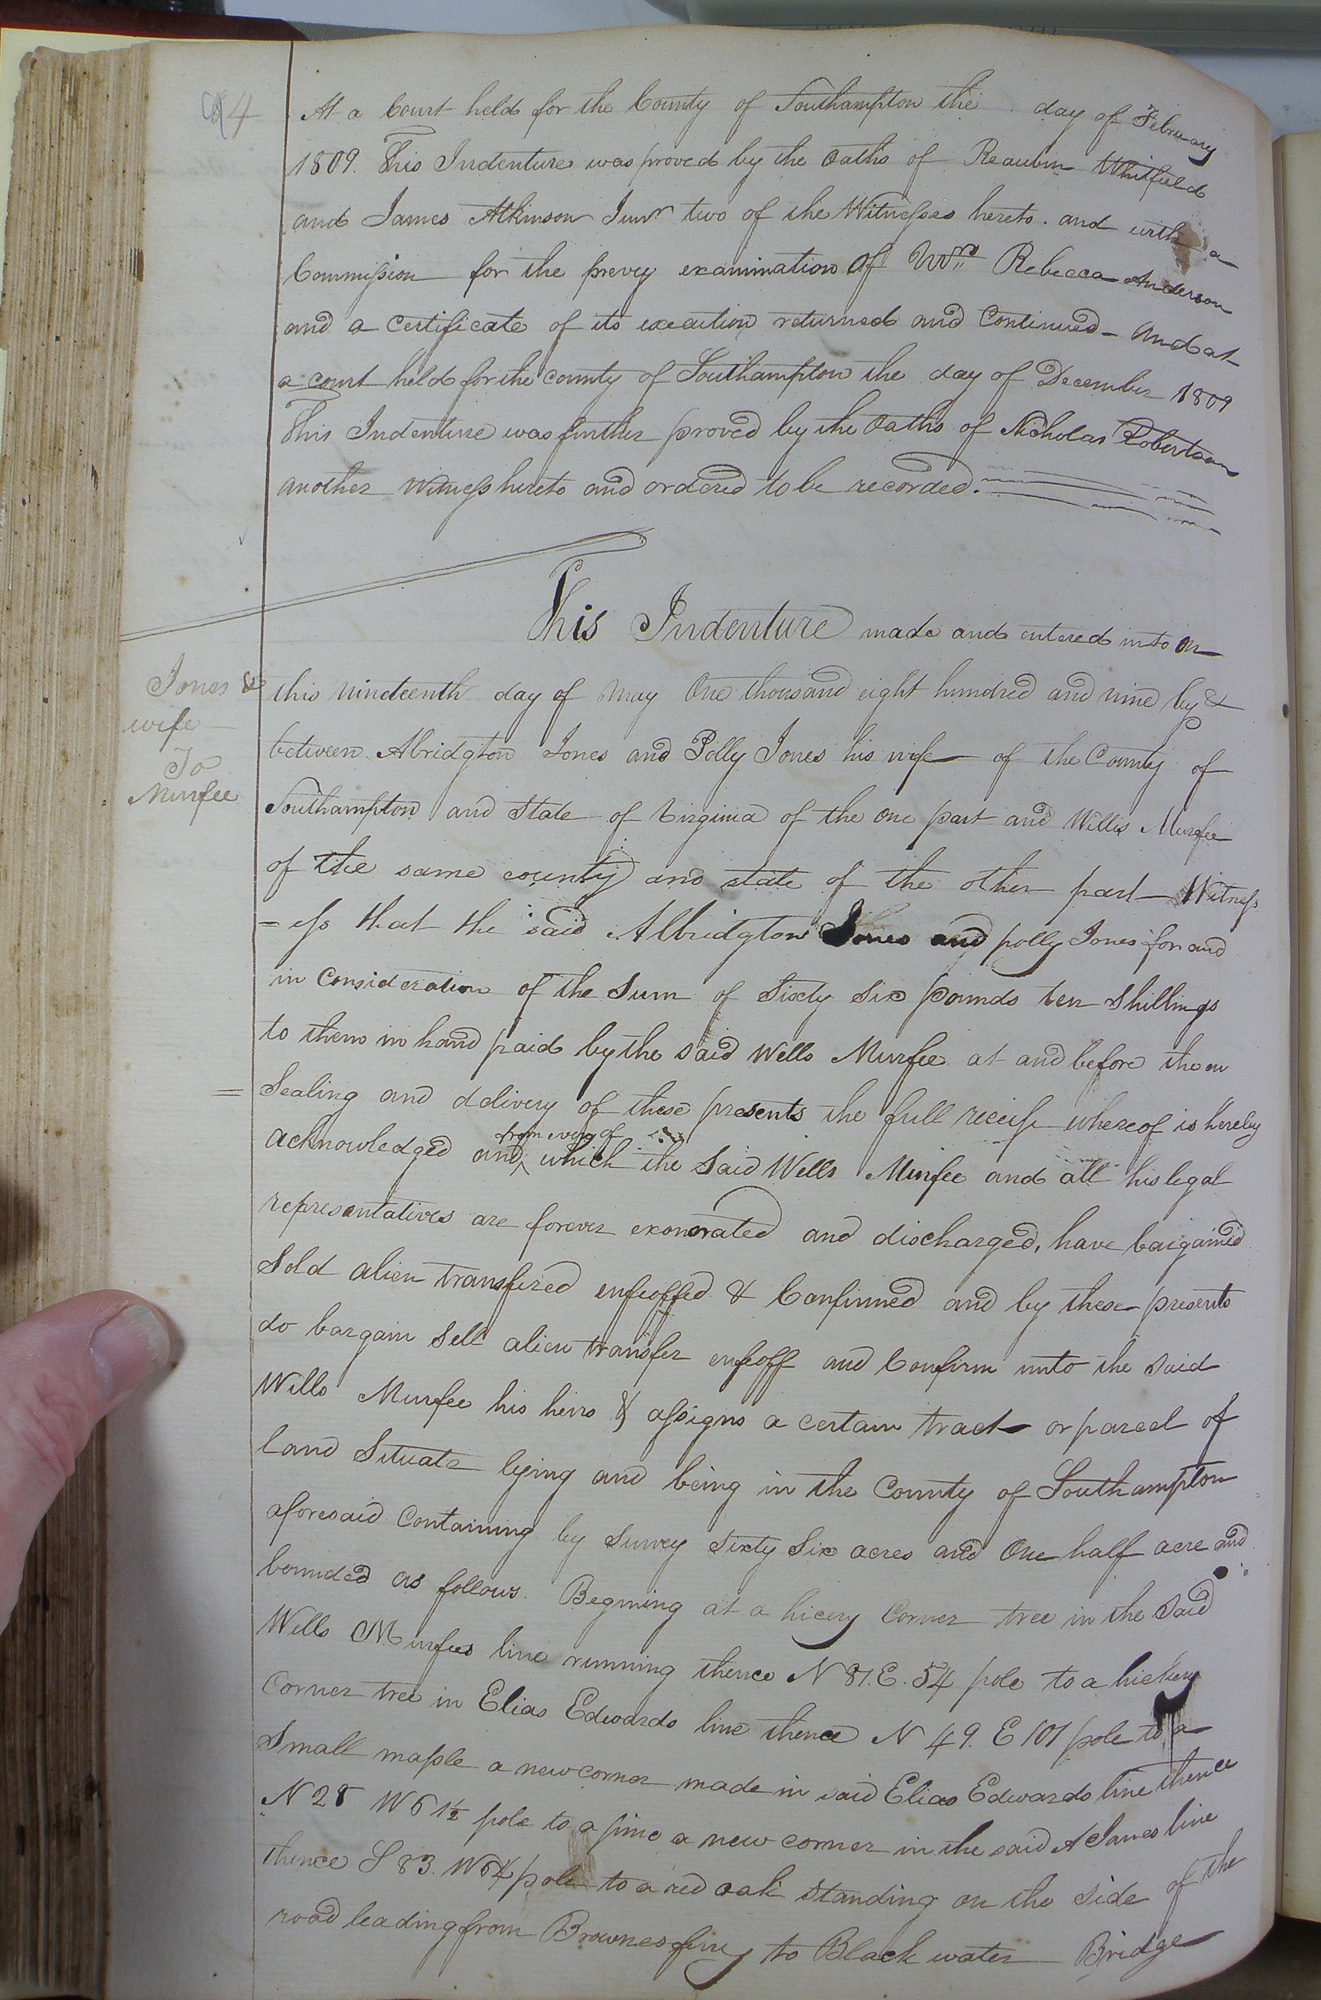 84
At a Court held for the County of Southampton the day of February
1809. This Indenture was proved by the Oaths of Reaubin Whitfield
and James Atkinson Junr two of the Witnesses hereto. and with a
Commission for the prevey examination of Mrs Rebecca Anderson
and a certificate of its execution returned and Continued - and at
a court held for the county of Southampton the day of December 1809
This Indenture was further proved by the Oaths of Nicholas Robertson
another witness hereto and ordered to be recorded.
This Indenture made and entered into on
Jones &
wife
To
Murfee
this nineteenth day of May One thousand eight hundred and nine by &
between Albridgton Jones and Polly Jones his wife of the County of
Southampton and State of Virginia of the one part and Wills Murfee
of the same county and state of the other part - Witness
=ess that the said Albridgton Jones and polly Jones for and
in Consideration of the Sum of Sixty Six pounds ten Shillings
to them in hand paid by the said Wells Murfee at and before the en
Sealing and ddlivery of these presents the full receip whereof is hereby
acknowledged and from every of which the Said Wells Murfee and all his legal
representatives are forever exonorated and discharged, have bargained
Sold alien transfered enfeoffed & Confirmed and by these presents
do bargain Sell alien transfer enfeoff and Confirm unto the said
Wills Murfee his heirs & assigns a certain tract or parcel of
land Situate lying and being in the County of Southampton
aforesaid Containing by Survey Sixty Six acres and One half acre and
bounded as follows. Begining at a hicery Corner tree in the said
Wells Murfees line running thence N 87. E. 54 pole to a hickery
Corner tree in Elias Edwards line thence N 49. E 101 pole to a
Small maple a new corner made in said Elias Edwards line thence
N 28 W 61½ pole to a pine a new corner in the said A Jones line
thence S 83. W 64 pole to a red oak standing on the side of the
road leading from Brownes ferry to Black water Bridge